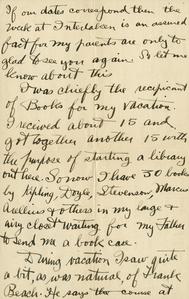 If our dates correspond then the
week at Interlaken is an assured
fact for my parents are only to
glad to see you again. So let me
know about this
I was chiefly the recipient
of Books for my vacation.
I recieved about 15 and
got together another 15 with
the purpose of starting a library
out here. So now I have 30 books
by Kipling, Doyle, Stevenson, Marcus
Aurelius & others in my large &
airy closet waiting for my Father
to send me a book case.
During vacation I saw quite
a bit as was natural of Frank
Beach. He says the course at